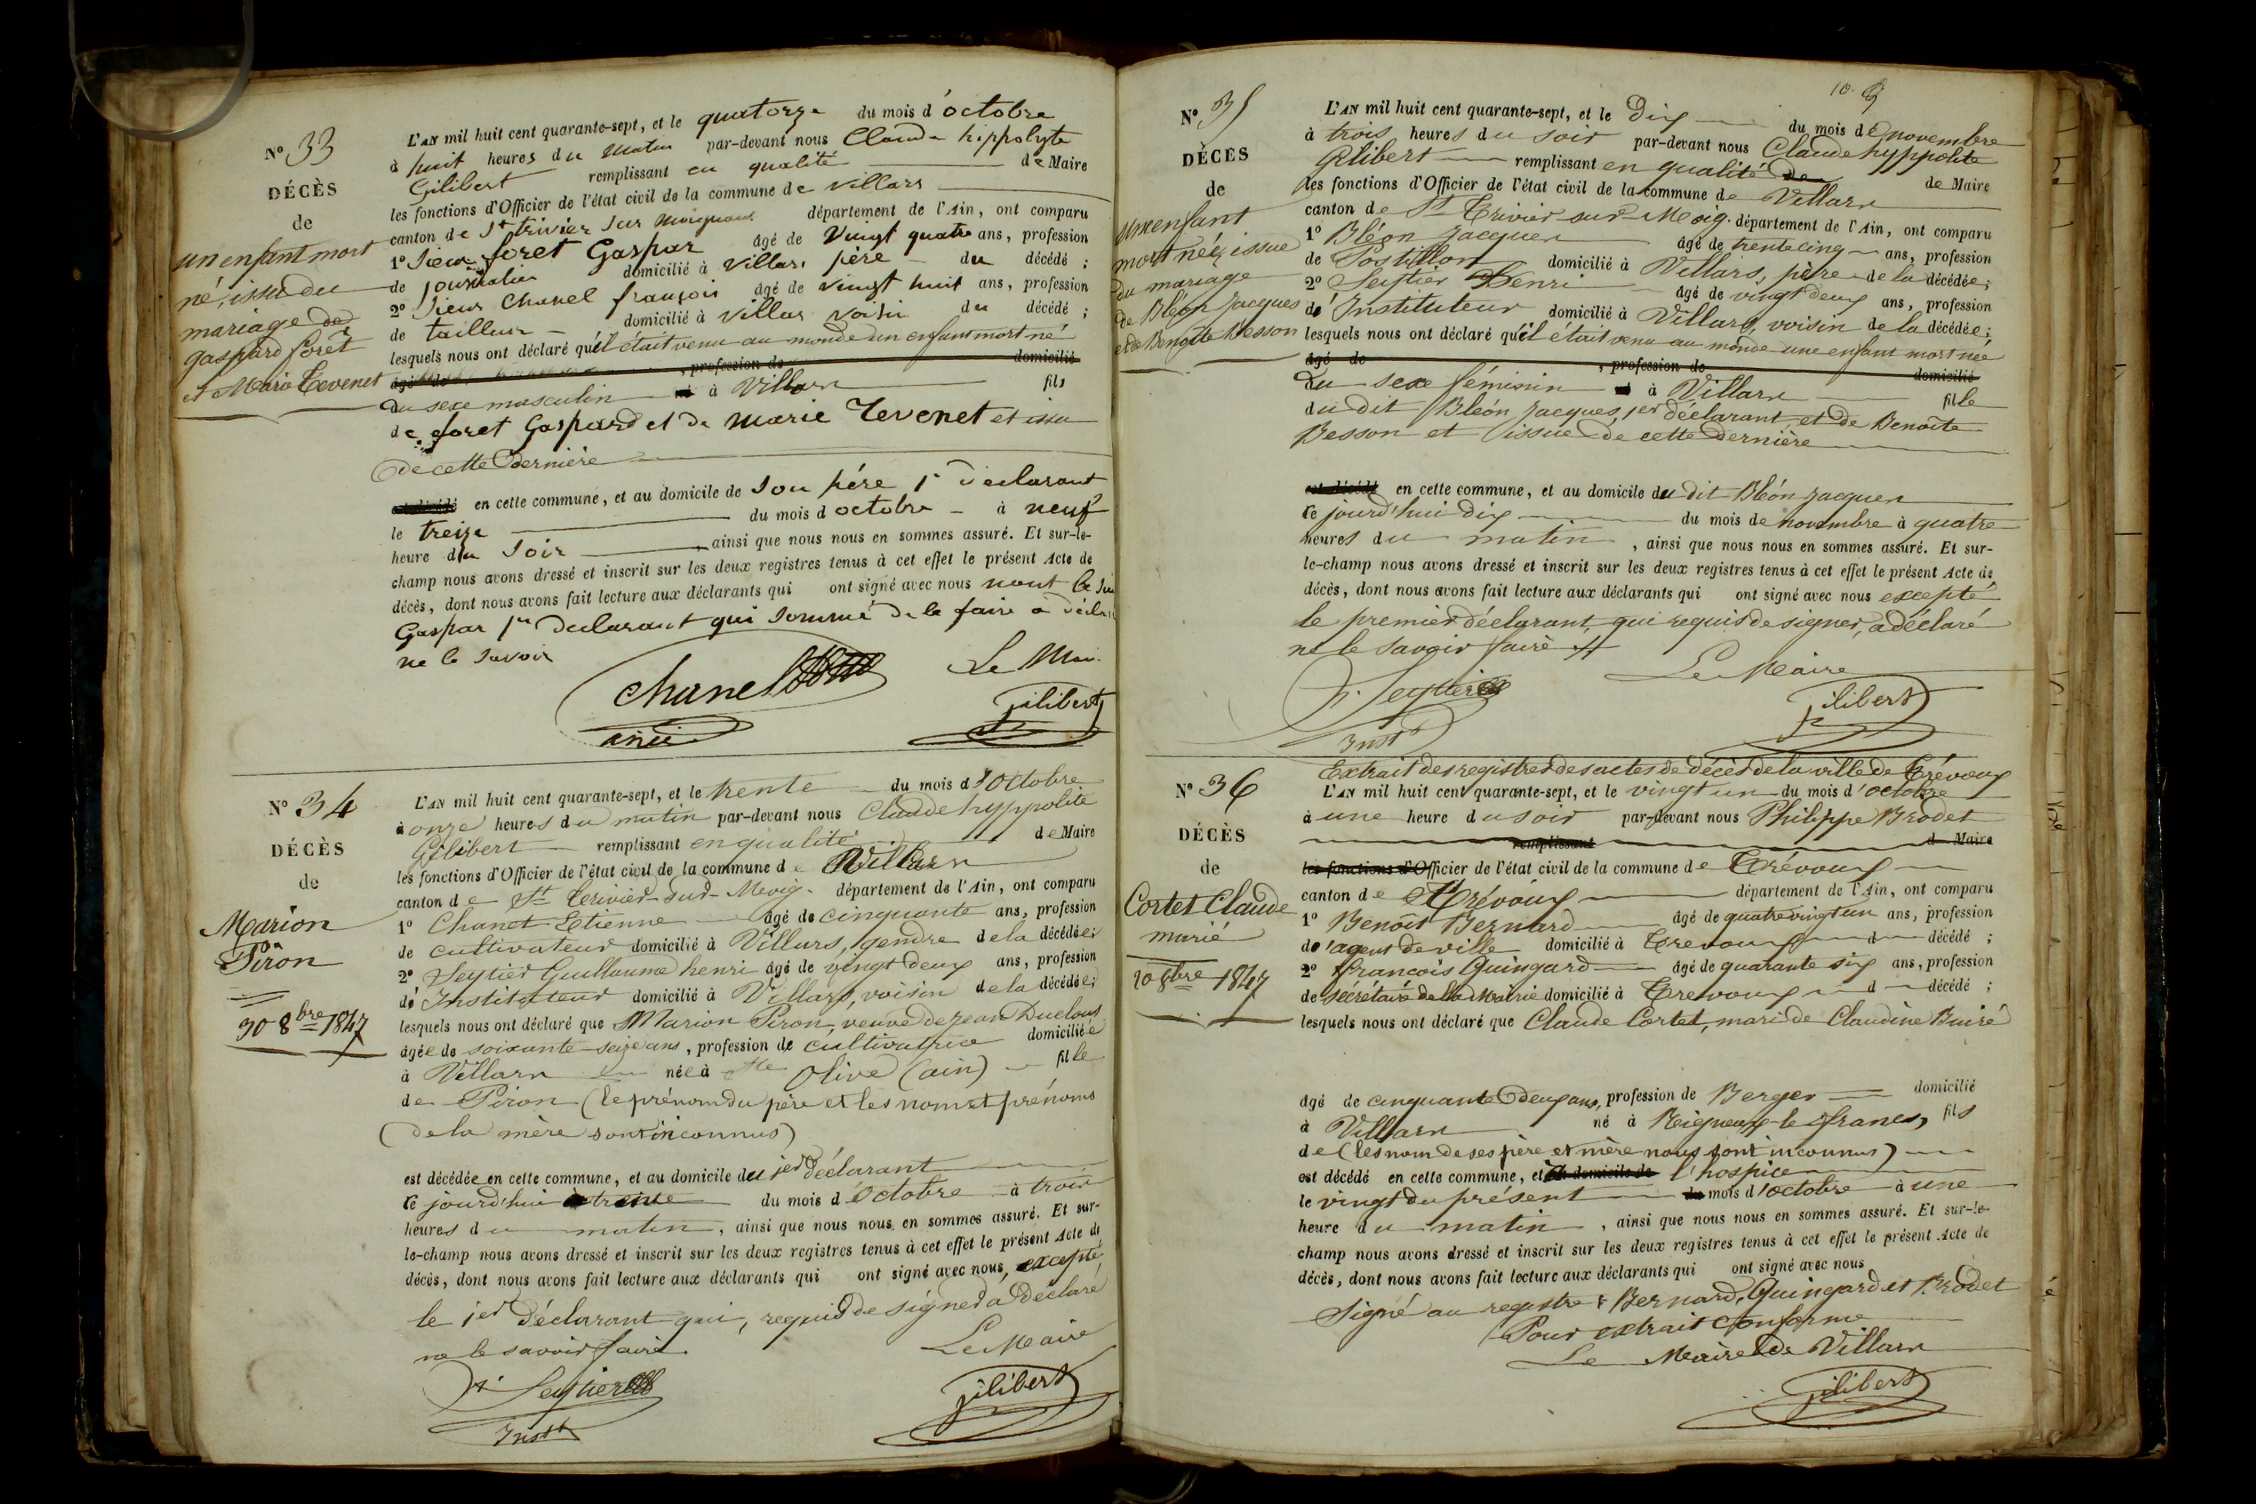 N° 33
DÉCÈS
de
un enfant mort
né, issu du
mariage de
gaspard foret
et Marie Tevenet
L'AN mil huit cent quarante-sept, et le quatorze du mois d'octobre
à huit heures du matin par-devant nous Claude hippolyte
Gilibert remplissant en qualité de Maire
les fonctions d'Officier de l'état civil de la commune de villars
canton de St trivier sur moignans département de l'Ain, ont comparu
1° Sieur foret Gaspar âgé de vingt quatre ans, profession
de journalier domicilié à villars père du décédé ;
2° Sieur Chanel françois âgé de vingt huit ans, profession
de tailleur domicilié à villars voisin du décédé ;
lesquels nous ont déclaré qu'il était venu au monde un enfant mort né
âgé de , profession de domicilié
du sexe masculin à Villars fils
de foret Gaspard et de marie Tevenet et issu
de cette dernière
en cette commune, et au domicile de son père 1er declarant
le treize du mois d octobre à neuf
heure du soir ainsi que nous nous en sommes assuré. Et sur-le-
champ nous avons dressé et inscrit sur les deux registres tenus à cet effet le présent Acte de
décès, dont nous avons fait lecture aux déclarants qui ont signé avec nous nont le
Gaspar 1er declarant qui sommé de le faire a déclaré
ne le savoir
chanel Le Maire
Gilibert
N° 34
DÉCÈS
de
Marion
Piron
30 8bre 1847
L'AN mil huit cent quarante-sept, et le trente du mois d'Octobre
à onze heures du matin par-devant nous Claude hyppolite
Gilibert remplissant en qualité de Maire
les fonctions d'Officier de l'état civil de la commune de Villars
canton de St Trivier-sur-Moig. département de l'Ain, ont comparu
1° Chanet Etienne âgé de cinquante ans, profession
de cultivateur domicilié à Villars, gendre de la décédée;
2° Seytier Guillaume henri âgé de vingt deux ans, profession
d'Instituteur domicilié à Villars, voisin de la décédée;
lesquels nous ont déclaré que Marion Piron, veuve de Jean Duclous
âgée de soixante-seize ans, profession de cultivatrice domiciliée
à Villars née à Ste Olive (ain) fille
de Piron (le prénom du père et les nom et prénoms
(de la mère sont inconnus)
est décédée en cette commune, et au domicile du 1er déclarant
ce jourd'hui trente du mois d'Octobre à trois
heures du matin, ainsi que nous nous en sommes assuré. Et sur-
le-champ nous avons dressé et inscrit sur les deux registres tenus à cet effet le présent Acte de
décès, dont nous avons fait lecture aux déclarants qui ont signé avec nous, excepté
le 1er déclarant qui, requis de signer a déclaré
ne le savoir faire.
Le Maire
Seytier
Instr
Gilibert
N° 35
DÉCÈS
de
une enfant
mort née, issue
du mariage
de Bléon Jacques
et de Benoîte Besson
L'AN mil huit cent quarante-sept, et le Dix du mois de novembre
à trois heures du soir par-devant nous Claude hyppolite
Gilibert remplissant en qualité de Maire
les fonctions d'Officier de l'état civil de la commune de Villars
canton de St Trivier sur Moig. département de l'Ain, ont comparu
1° Bléon Jacques âgé de trente cinq ans, profession
de Postillon domicilié à Villars, père de la décédée;
2° Seytier Henri âgé de vingt deux ans, profession
d'Instituteur domicilié à Villars, voisin de la décédée;
lesquels nous ont déclaré qu'il était venu au monde une enfant mort née
âgé de , profession de domicilié
du sexe féminin à Villars fille
du dit Bléon Jacques, 1er déclarant et de Benoîte
Besson et issue de cette dernière
est décédé en cette commune, et au domicile du dit Bléon Jacques
ce jourd'hui dix du mois de novembre à quatre
heures du matin, ainsi que nous nous en sommes assuré. Et sur-
le-champ nous avons dressé et inscrit sur les deux registres tenus à cet effet le présent Acte de
décès, dont nous avons fait lecture aux déclarants qui ont signé avec nous excepté
le premier déclarant qui requis de signer, a déclaré
ne le savoir faire
Le Maire
Seytier
Instr
Gilibert
N° 36
DÉCÈS
de
Cortet Claude
marié
20 8bre 1847
Extrait des registres des actes de décès de la ville de Trévoux
L'AN mil huit cent quarante-sept, et le vingt un du mois d'octobre
à une heure du soir par-devant nous Philippe Brodet
remplissant d Maire
les fonctions d'Officier de l'état civil de la commune de Trévoux
canton de Trévoux département de l'Ain, ont comparu
1° Benoît Bernard âgé de quatre vingt un ans, profession
d'agent de ville domicilié à Trevoux d décédé ;
2° François Guingard âgé de quarante six ans, profession
de secrétaire de la Mairie domicilié à Trevoux d décédé ;
lesquels nous ont déclaré que Claude Cortet, mari de Claudine Buiré
âgé de cinquante deux ans, profession de Berger domicilié
à Villars né à Reigneux-le-franc, fils
de (les nom de ses père et mère nous sont inconnus)
est décédé en cette commune, et au domicile de l'hospice
le vingt du présent du mois d'octobre à une
heure du matin, ainsi que nous nous en sommes assuré. Et sur-le-
champ nous avons dressé et inscrit sur les deux registres tenus à cet effet le présent Acte de
décès, dont nous avons fait lecture aux déclarants qui ont signé avec nous
Signé au registre : Bernard, Guingard et Brodet
Pour extrait conforme
Le Maire de Villars
Gilibert